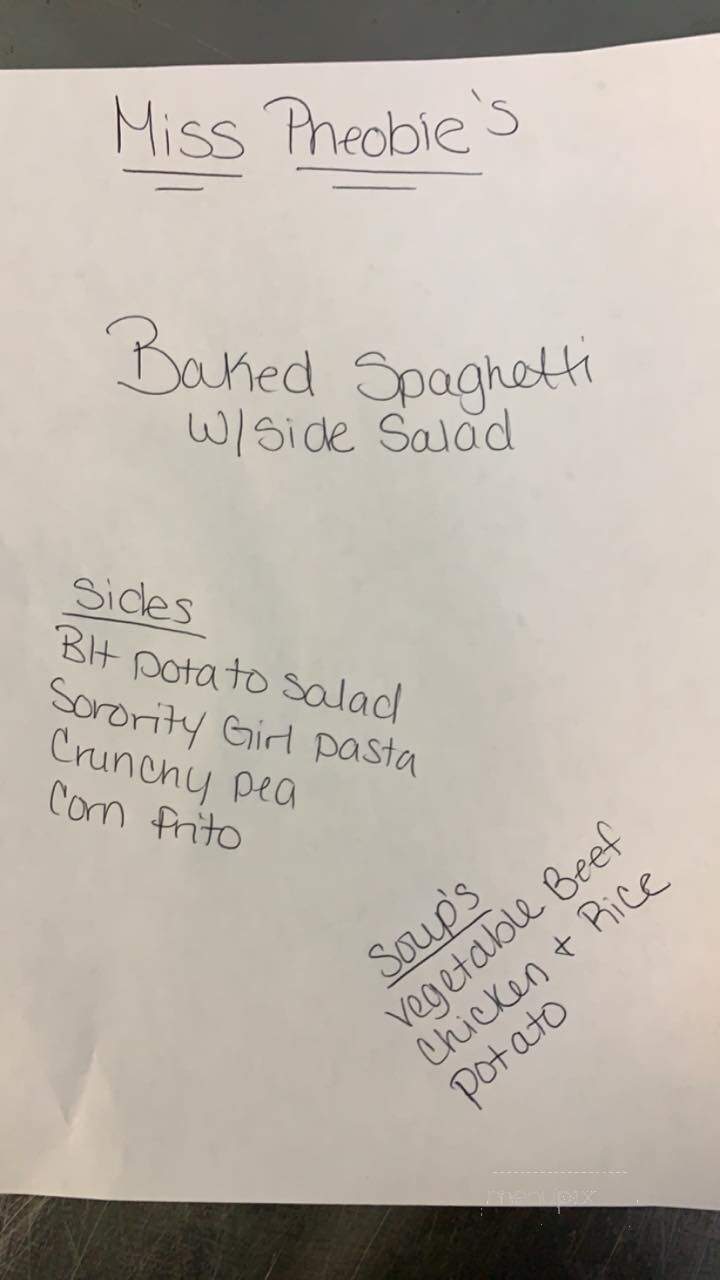 Miss Pheobie's
Baked Spaghetti
W/Side Salad
Sides
Blt potato salad
Sorority Girl pasta
Crunchy pea
Corn frito
Soup's
Vegetable Beef
Chicken & Rice
potato
menupix